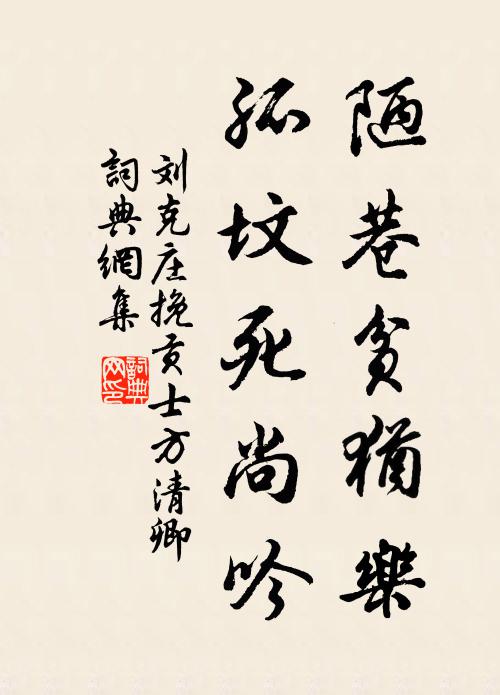 陋巷貧猶樂
孤坟死尚吟
刘克庄挽贡士方清卿
詞典網集
詞典网印